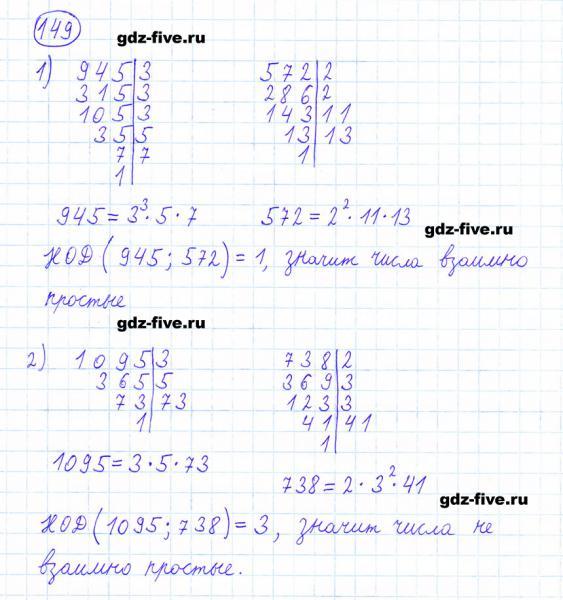 149
gdz-five.ru
1) 945|3 572|2
315|3 286|2
105|3 143|11
35|5 13|13
7|7 1|
1|
945 = 3³ · 5 · 7 572 = 2² · 11 · 13
gdz-five.ru
НОД (945; 572) = 1, значит числа взаимно
простые
gdz-five.ru
2) 1095|3 738|2
365|5 369|3
73|73 123|3
1| 41|41
1|
1095 = 3 · 5 · 73
738 = 2 · 3² · 41
gdz-five.ru
НОД (1095; 738) = 3, значит числа не
взаимно простые.